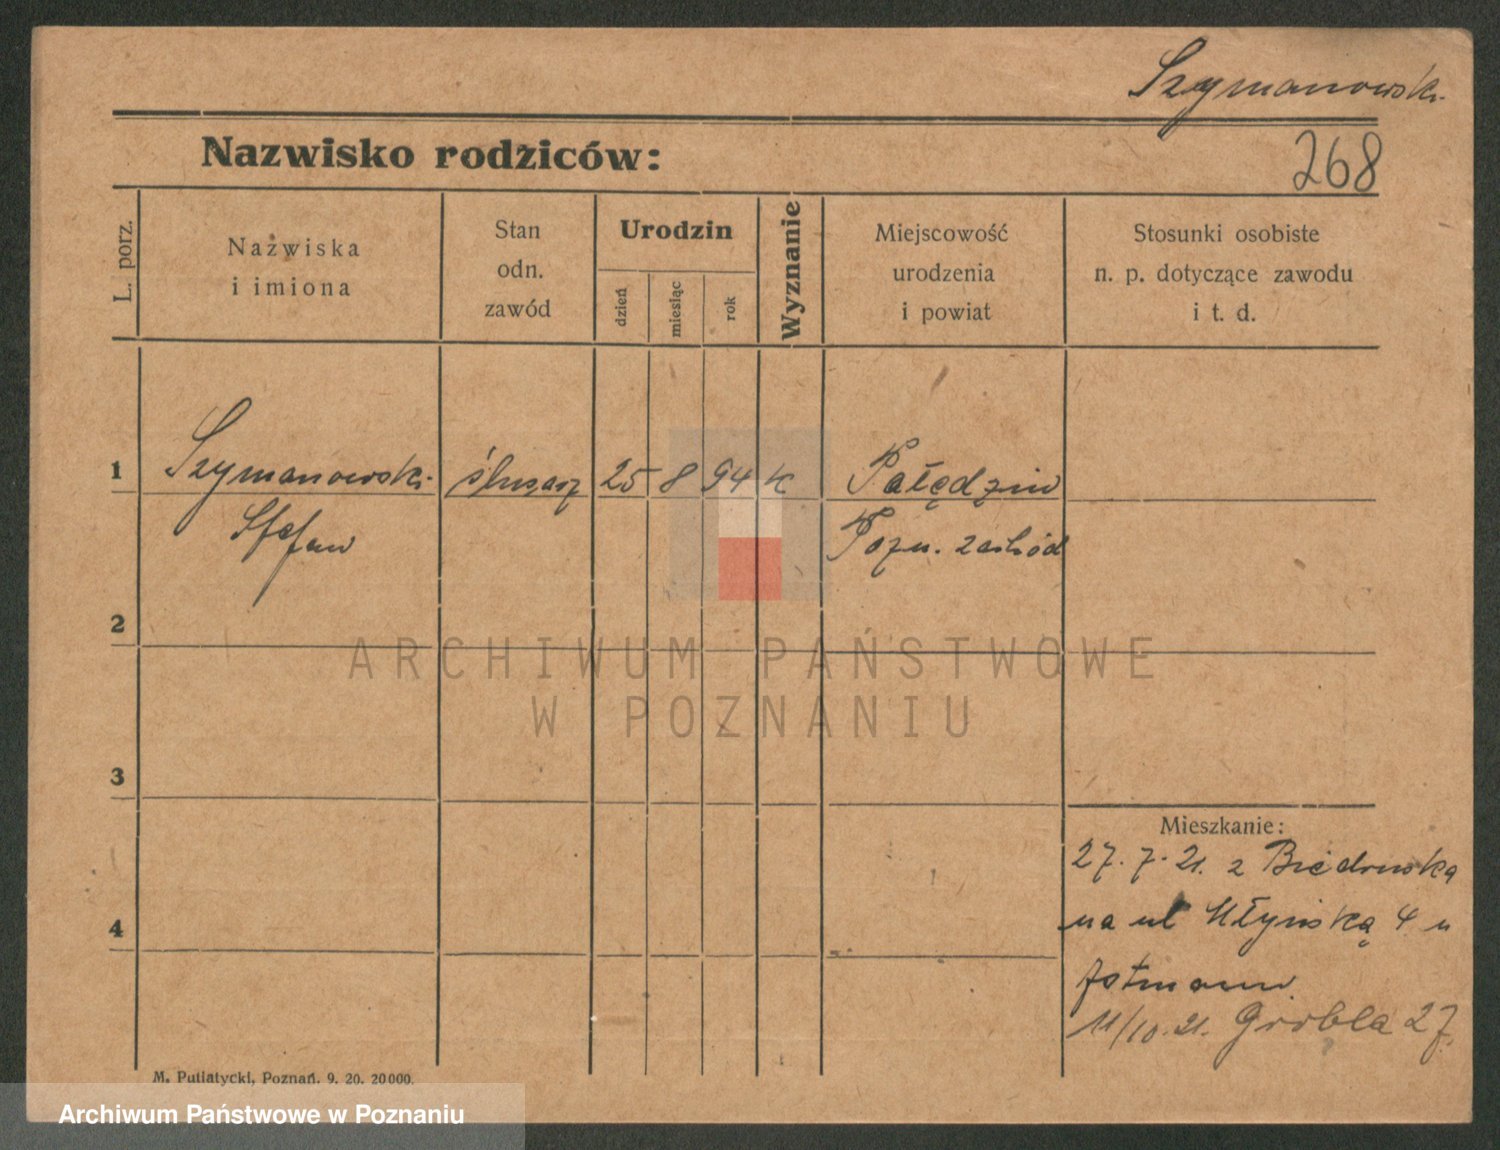 Szymanowski
Nazwisko rodziców:
268
L. porz.
Nazwiska
i imiona
Stan
odn.
zawód
Urodzin
dzień
miesiąc
rok
Wyznanie
Miejscowość
urodzenia
i powiat
Stosunki osobiste
n. p. dotyczące zawodu
i t. d.
1
Szymanowski ślusarz 25 8 94 k Pałędzin
Stefan Pozn. zachód
2
ARCHIWUM PAŃSTWOWE
W POZNANIU
3
Mieszkanie:
27. 7. 21. z Biedruska
4
na ul Młyńską 4 u
11/10. 21. Grobla 27.
M. Putiatycki, Poznań. 9. 20. 20000.
Archiwum Państwowe w Poznaniu